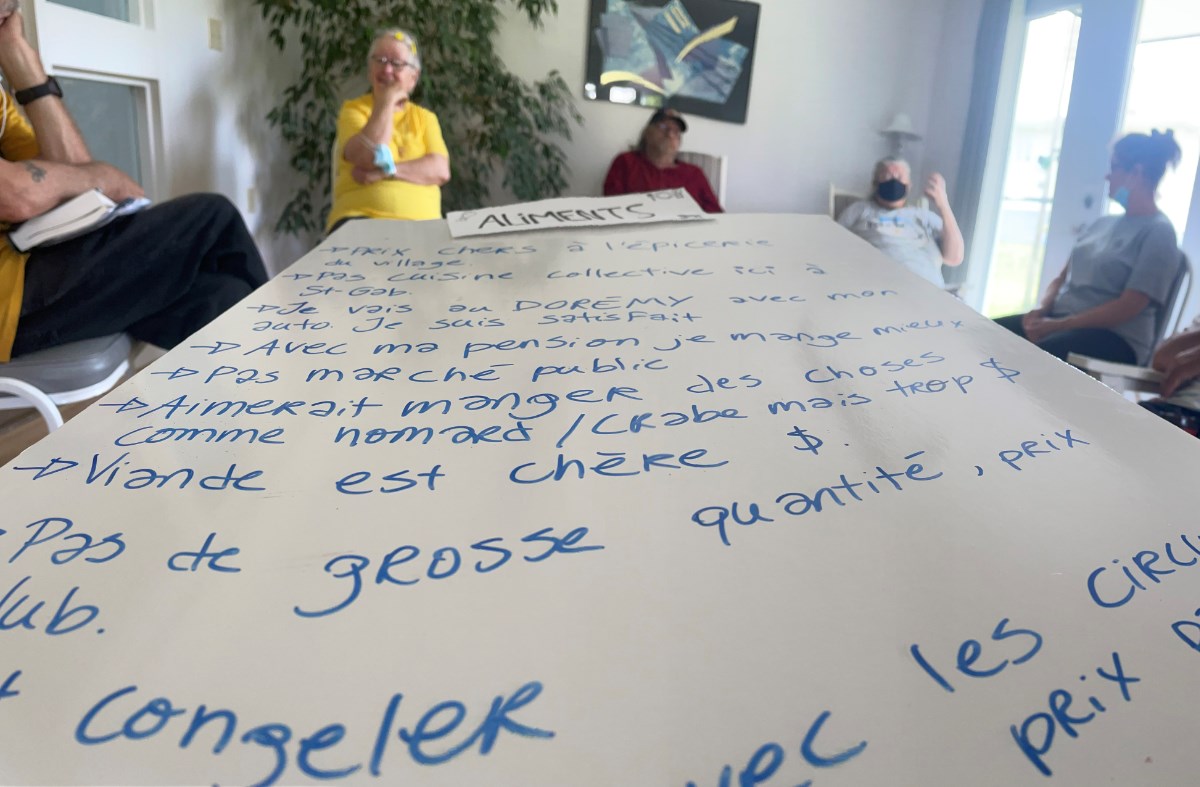 ALIMENTS
→ PRIX CHERS à l'épicerie
du village.
→ Pas cuisine collective ici à
St-Gab.
→ Je vais au DORÉMY avec mon
auto. Je suis satisfait
→ Avec ma pension je mange mieux
→ Pas marché public
→ Aimerait manger des choses
comme homard / crabe mais trop $
→ Viande est chère $.
Pas de grosse quantité, prix
congeler
les
prix